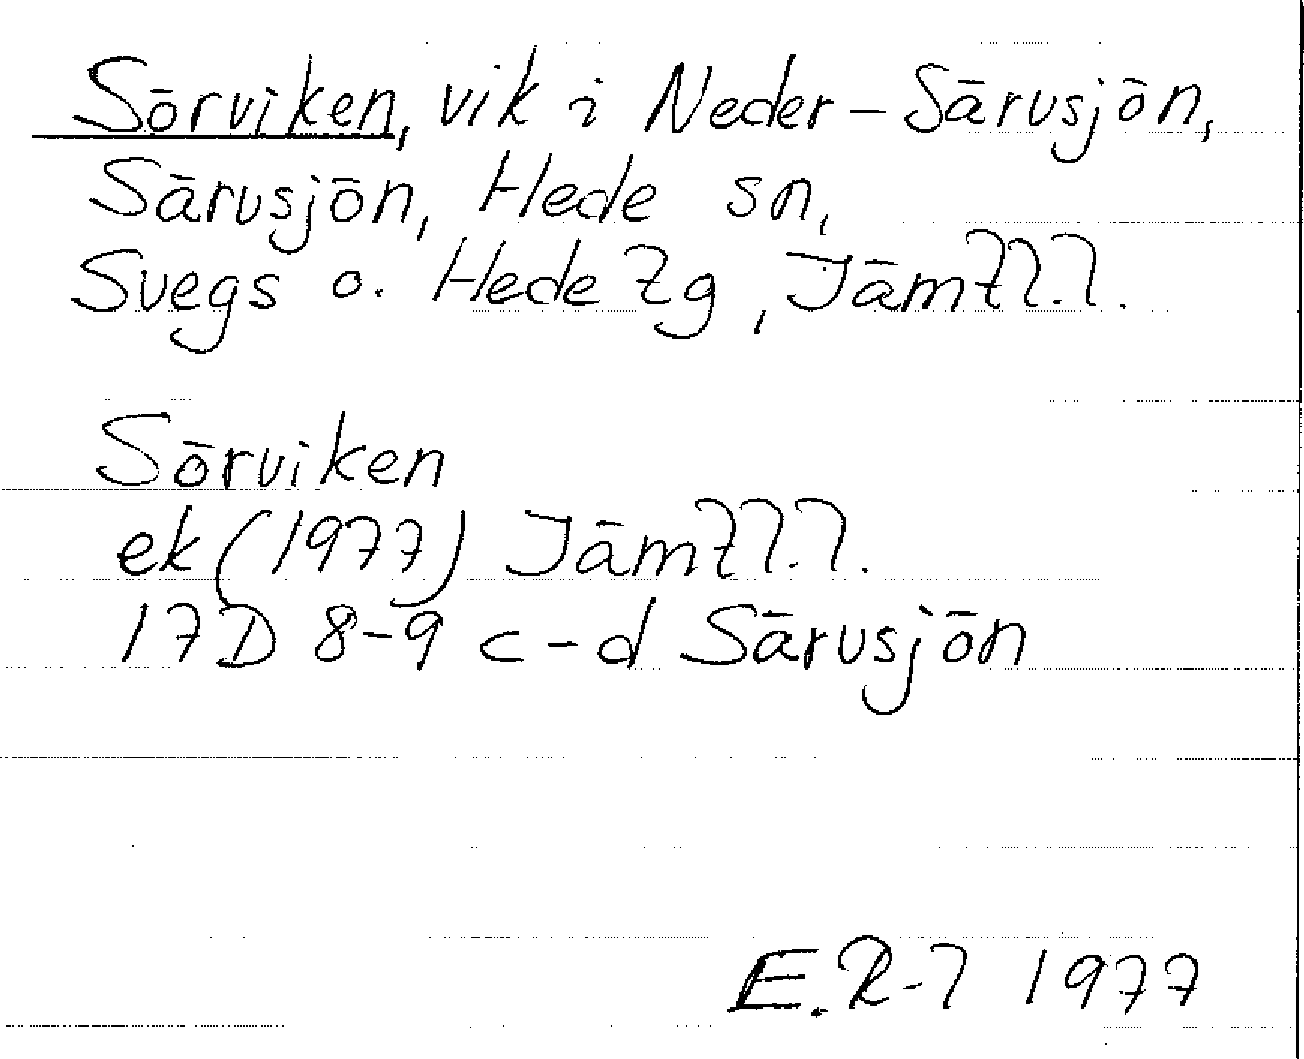 Sörviken, vik i Neder-Särvsjön,
Särvsjön, Hede sn,
Svegs o. Hede tg, Jämtl.l.
Sörviken
ek (1977) Jämtl.l.
17D 8-9 c-d Särvsjön
1977